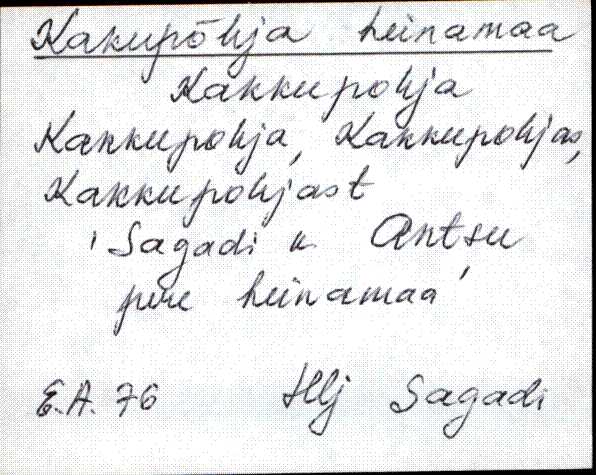 Kakupõhja heinamaa
Kakkupohja
Kakkupohja, Kakkupohjas,
Kakkupohjast
'Sagadi k. Antsu
pere heinamaa'
E.A. 76 Hlj Sagadi